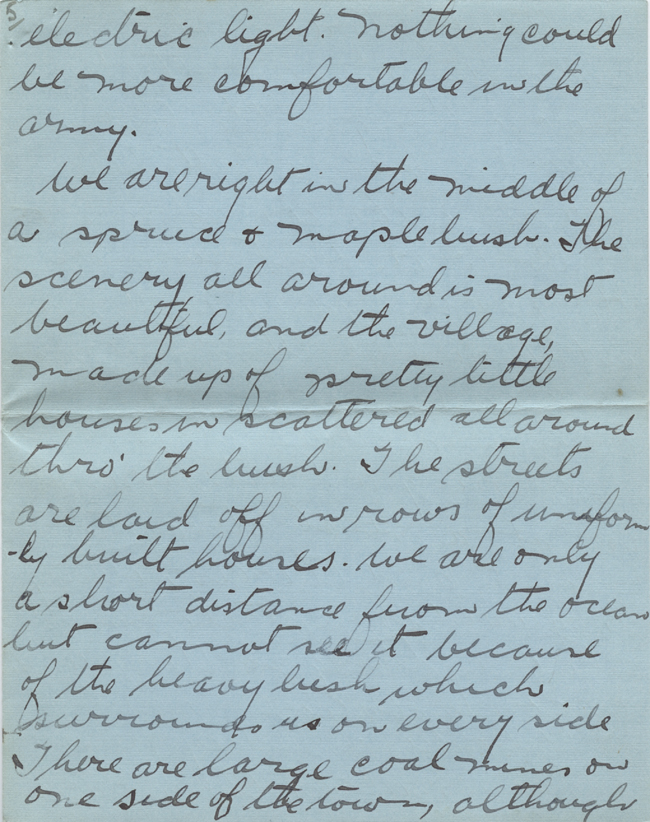 electric light. Nothing could
be more comfortable in the
army.
We are right in the middle of
a spruce & maple bush. The
scenery all around is most
beautiful, and the village,
made up of pretty little
houses in scattered all around
thro' the bush. The streets
are laid off in rows of uniform
-ly built houses. We are only
a short distance from the ocean
but cannot see it because
of the heavy bush which
surrounds us on every side
There are large coal mines on
one side of the town, although